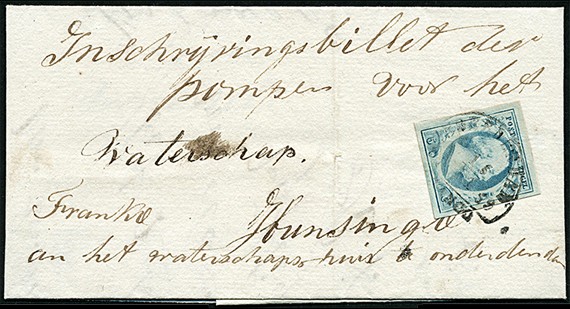 Inschrijvingsbillet der
pompen voor het
Waterschap.
Franko Hunsingo
an het waterschaps huis te onderdendam
POST